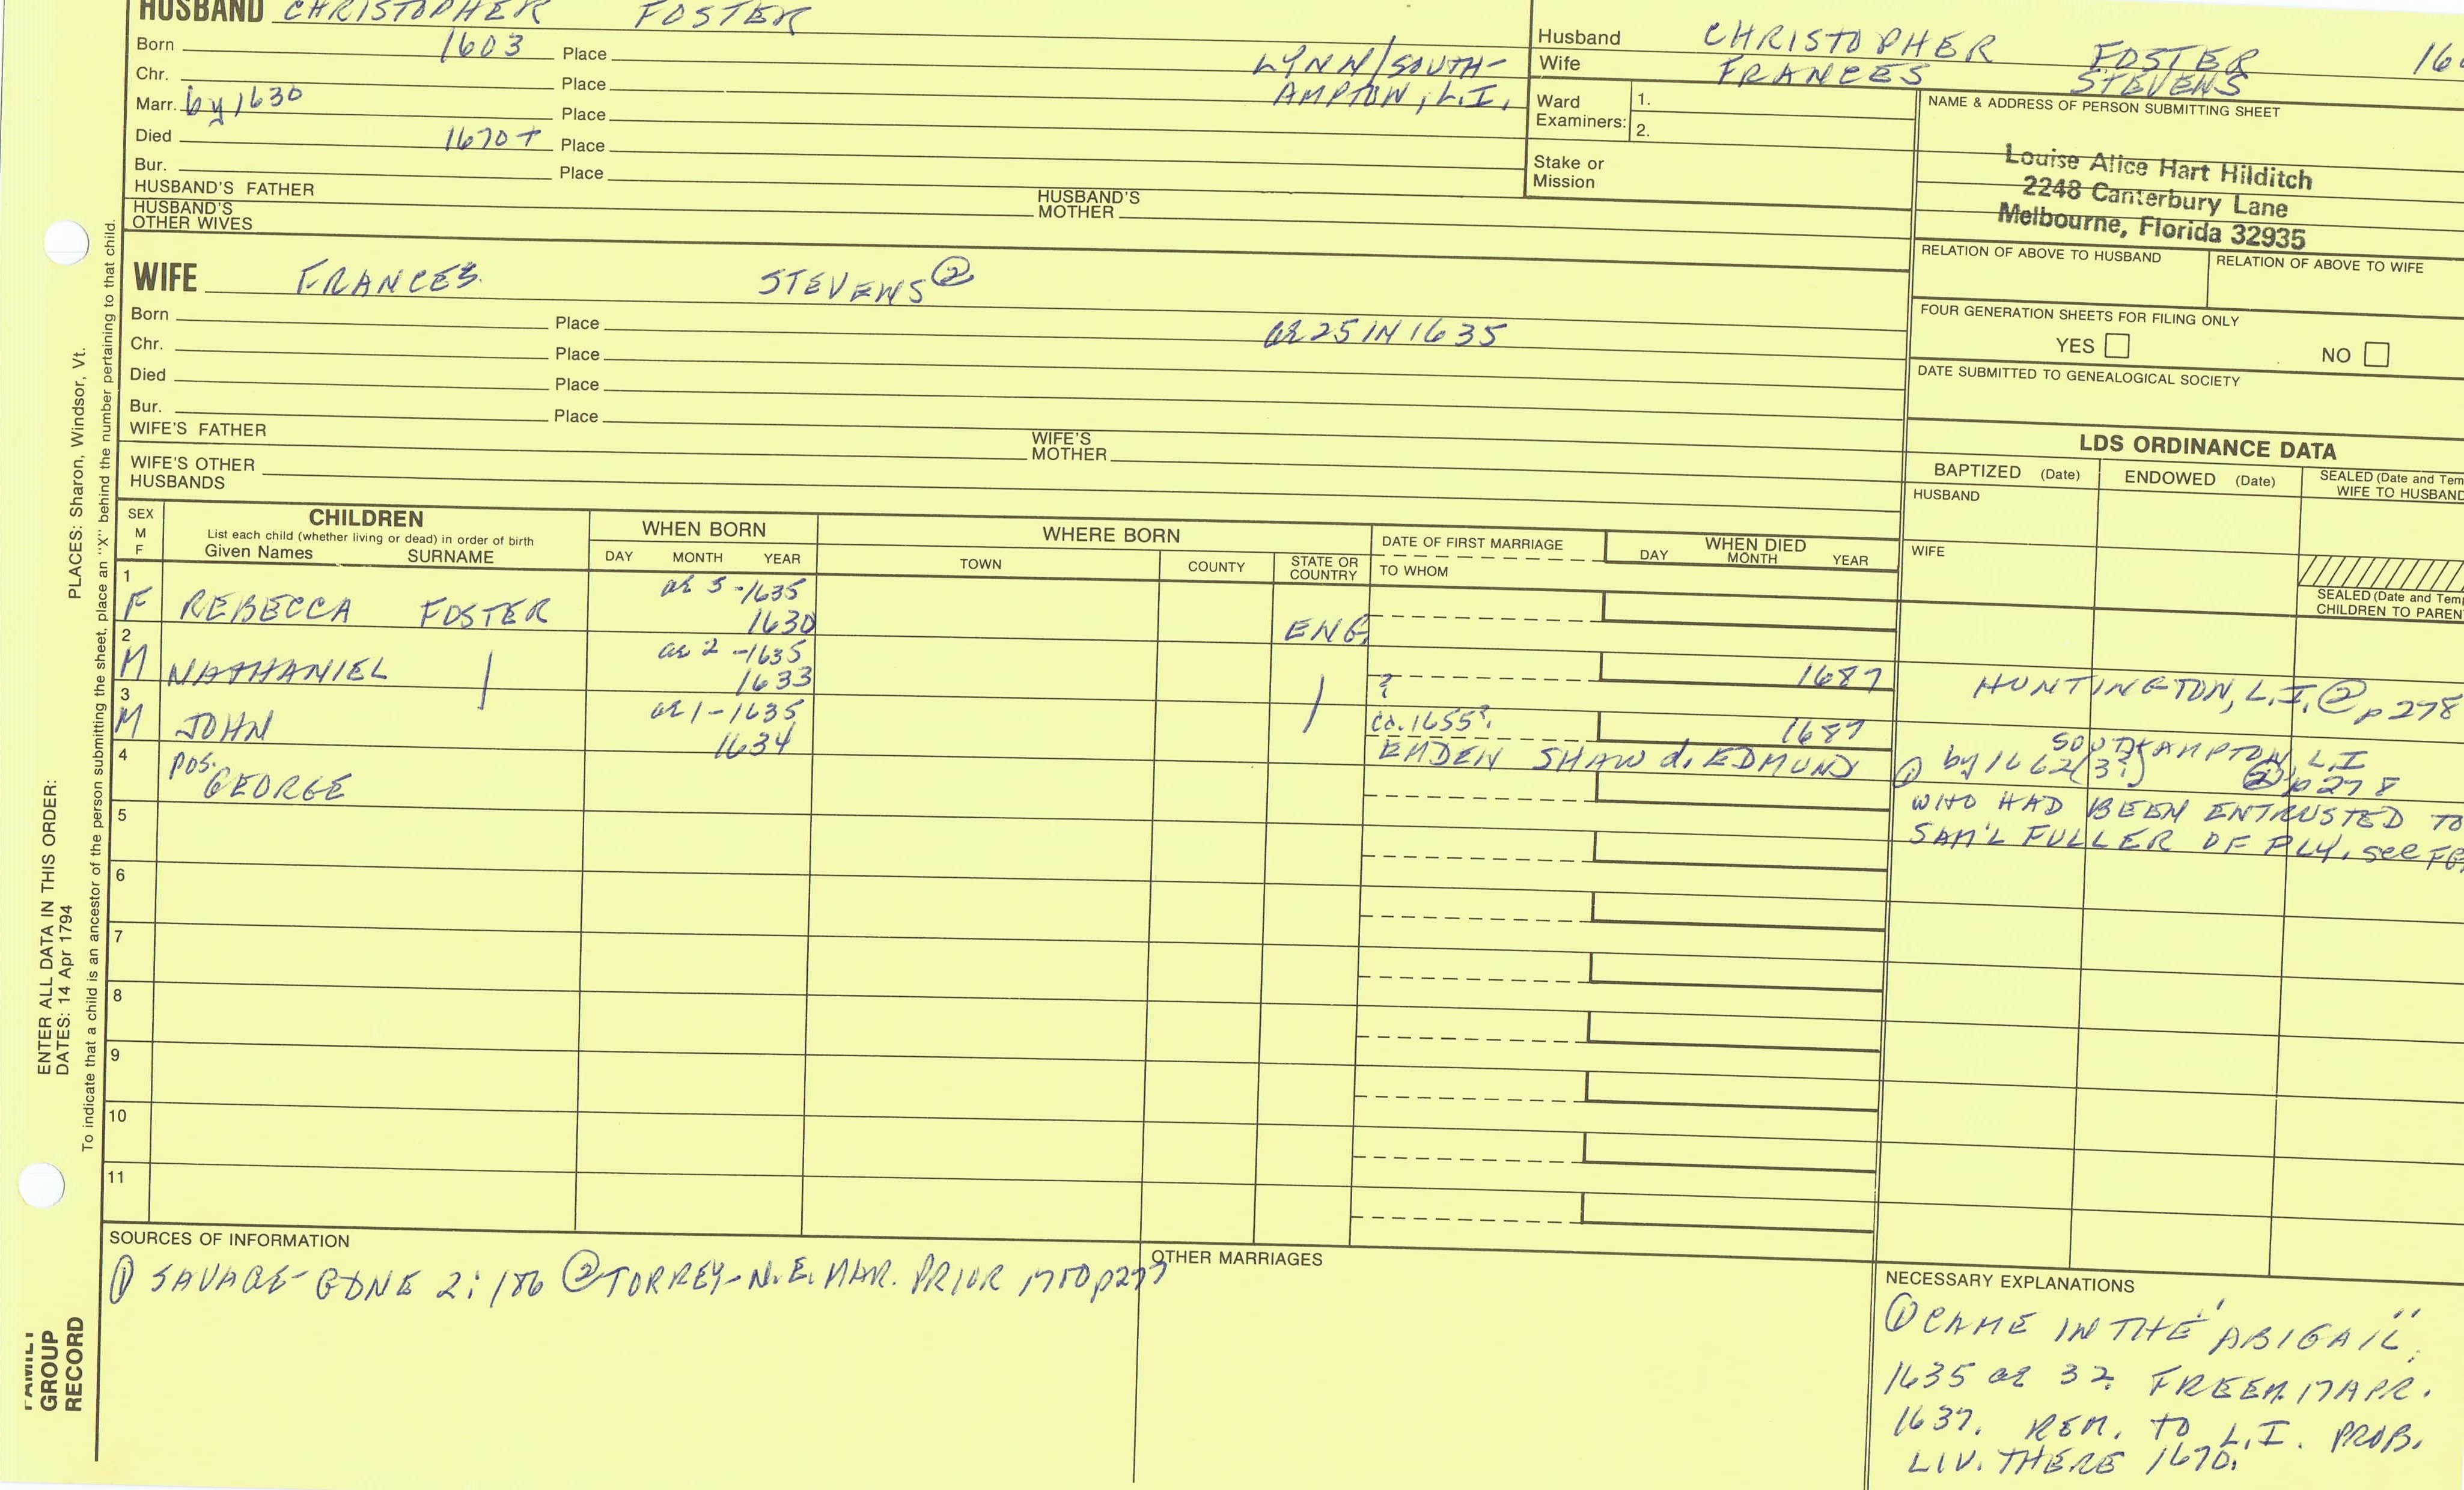 HUSBAND CHRISTOPHER FOSTER
Born 1603 Place LYNN/SOUTH-
Chr. Place AMPTON, L.I.
Marr. by 1630 Place
Died 1670+ Place
Bur. Place
HUSBAND'S FATHER HUSBAND'S MOTHER
HUSBAND'S OTHER WIVES
Husband CHRISTOPHER FOSTER
Wife FRANCES STEVENS
Ward Examiners: 1.
2.
Stake or Mission
NAME & ADDRESS OF PERSON SUBMITTING SHEET
Louise Alice Hart Hilditch
2248 Canterbury Lane
Melbourne, Florida 32935
RELATION OF ABOVE TO HUSBAND RELATION OF ABOVE TO WIFE
FOUR GENERATION SHEETS FOR FILING ONLY
YES NO
DATE SUBMITTED TO GENEALOGICAL SOCIETY
WIFE FRANCES STEVENS ②
Born Place ae 25 IN 1635
Chr. Place
Died Place
Bur. Place
WIFE'S FATHER WIFE'S MOTHER
WIFE'S OTHER HUSBANDS
LDS ORDINANCE DATA
BAPTIZED (Date) ENDOWED (Date) SEALED (Date and Tem
WIFE TO HUSBAND
HUSBAND
WIFE
SEALED (Date and Tem
CHILDREN TO PAREN
SEX
M
F
CHILDREN
List each child (whether living or dead) in order of birth
Given Names SURNAME
WHEN BORN
DAY MONTH YEAR
WHERE BORN
TOWN COUNTY STATE OR COUNTRY
DATE OF FIRST MARRIAGE
TO WHOM
WHEN DIED
DAY MONTH YEAR
1 ae 5 -1635
F REBECCA FOSTER 1630 ENG.
2 ae 2 -1635
M NATHANIEL 1633 ? 1687 HUNTINGTON, L.I. ② p 278
3 ae 1 - 1635 ca. 1655? 1687 SOUTHAMPTON, L.I
M JOHN 1634 EMDEN SHAW d. EDMUND ① by 1662(3?) ② p 278
4 pos. GEORGE
WHO HAD BEEN ENTRUSTED TO
SAM'L FULLER OF PLY. see
5
6
7
8
9
10
11
SOURCES OF INFORMATION
① SAVAGE - GDNE 2: 186 ② TORREY - N.E. MAR. PRIOR 1750 p277
OTHER MARRIAGES
NECESSARY EXPLANATIONS
① CAME IN THE "ABIGAIL",
1635 ae 32. FREEM. 17 APR.
1637. REM. TO L.I. PROB.
LIV. THERE 1670.
PLACES: Sharon, Windsor, Vt.
ENTER ALL DATA IN THIS ORDER:
DATES: 14 Apr 1794
To indicate that a child is an ancestor of the person submitting the sheet, place an "X" behind the number pertaining to that child.
FAMILY
GROUP
RECORD